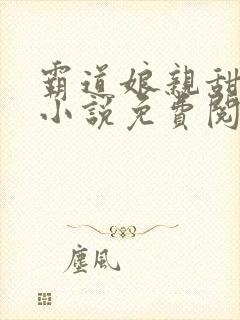 霸道娘親甜
小說免費閱
塵風